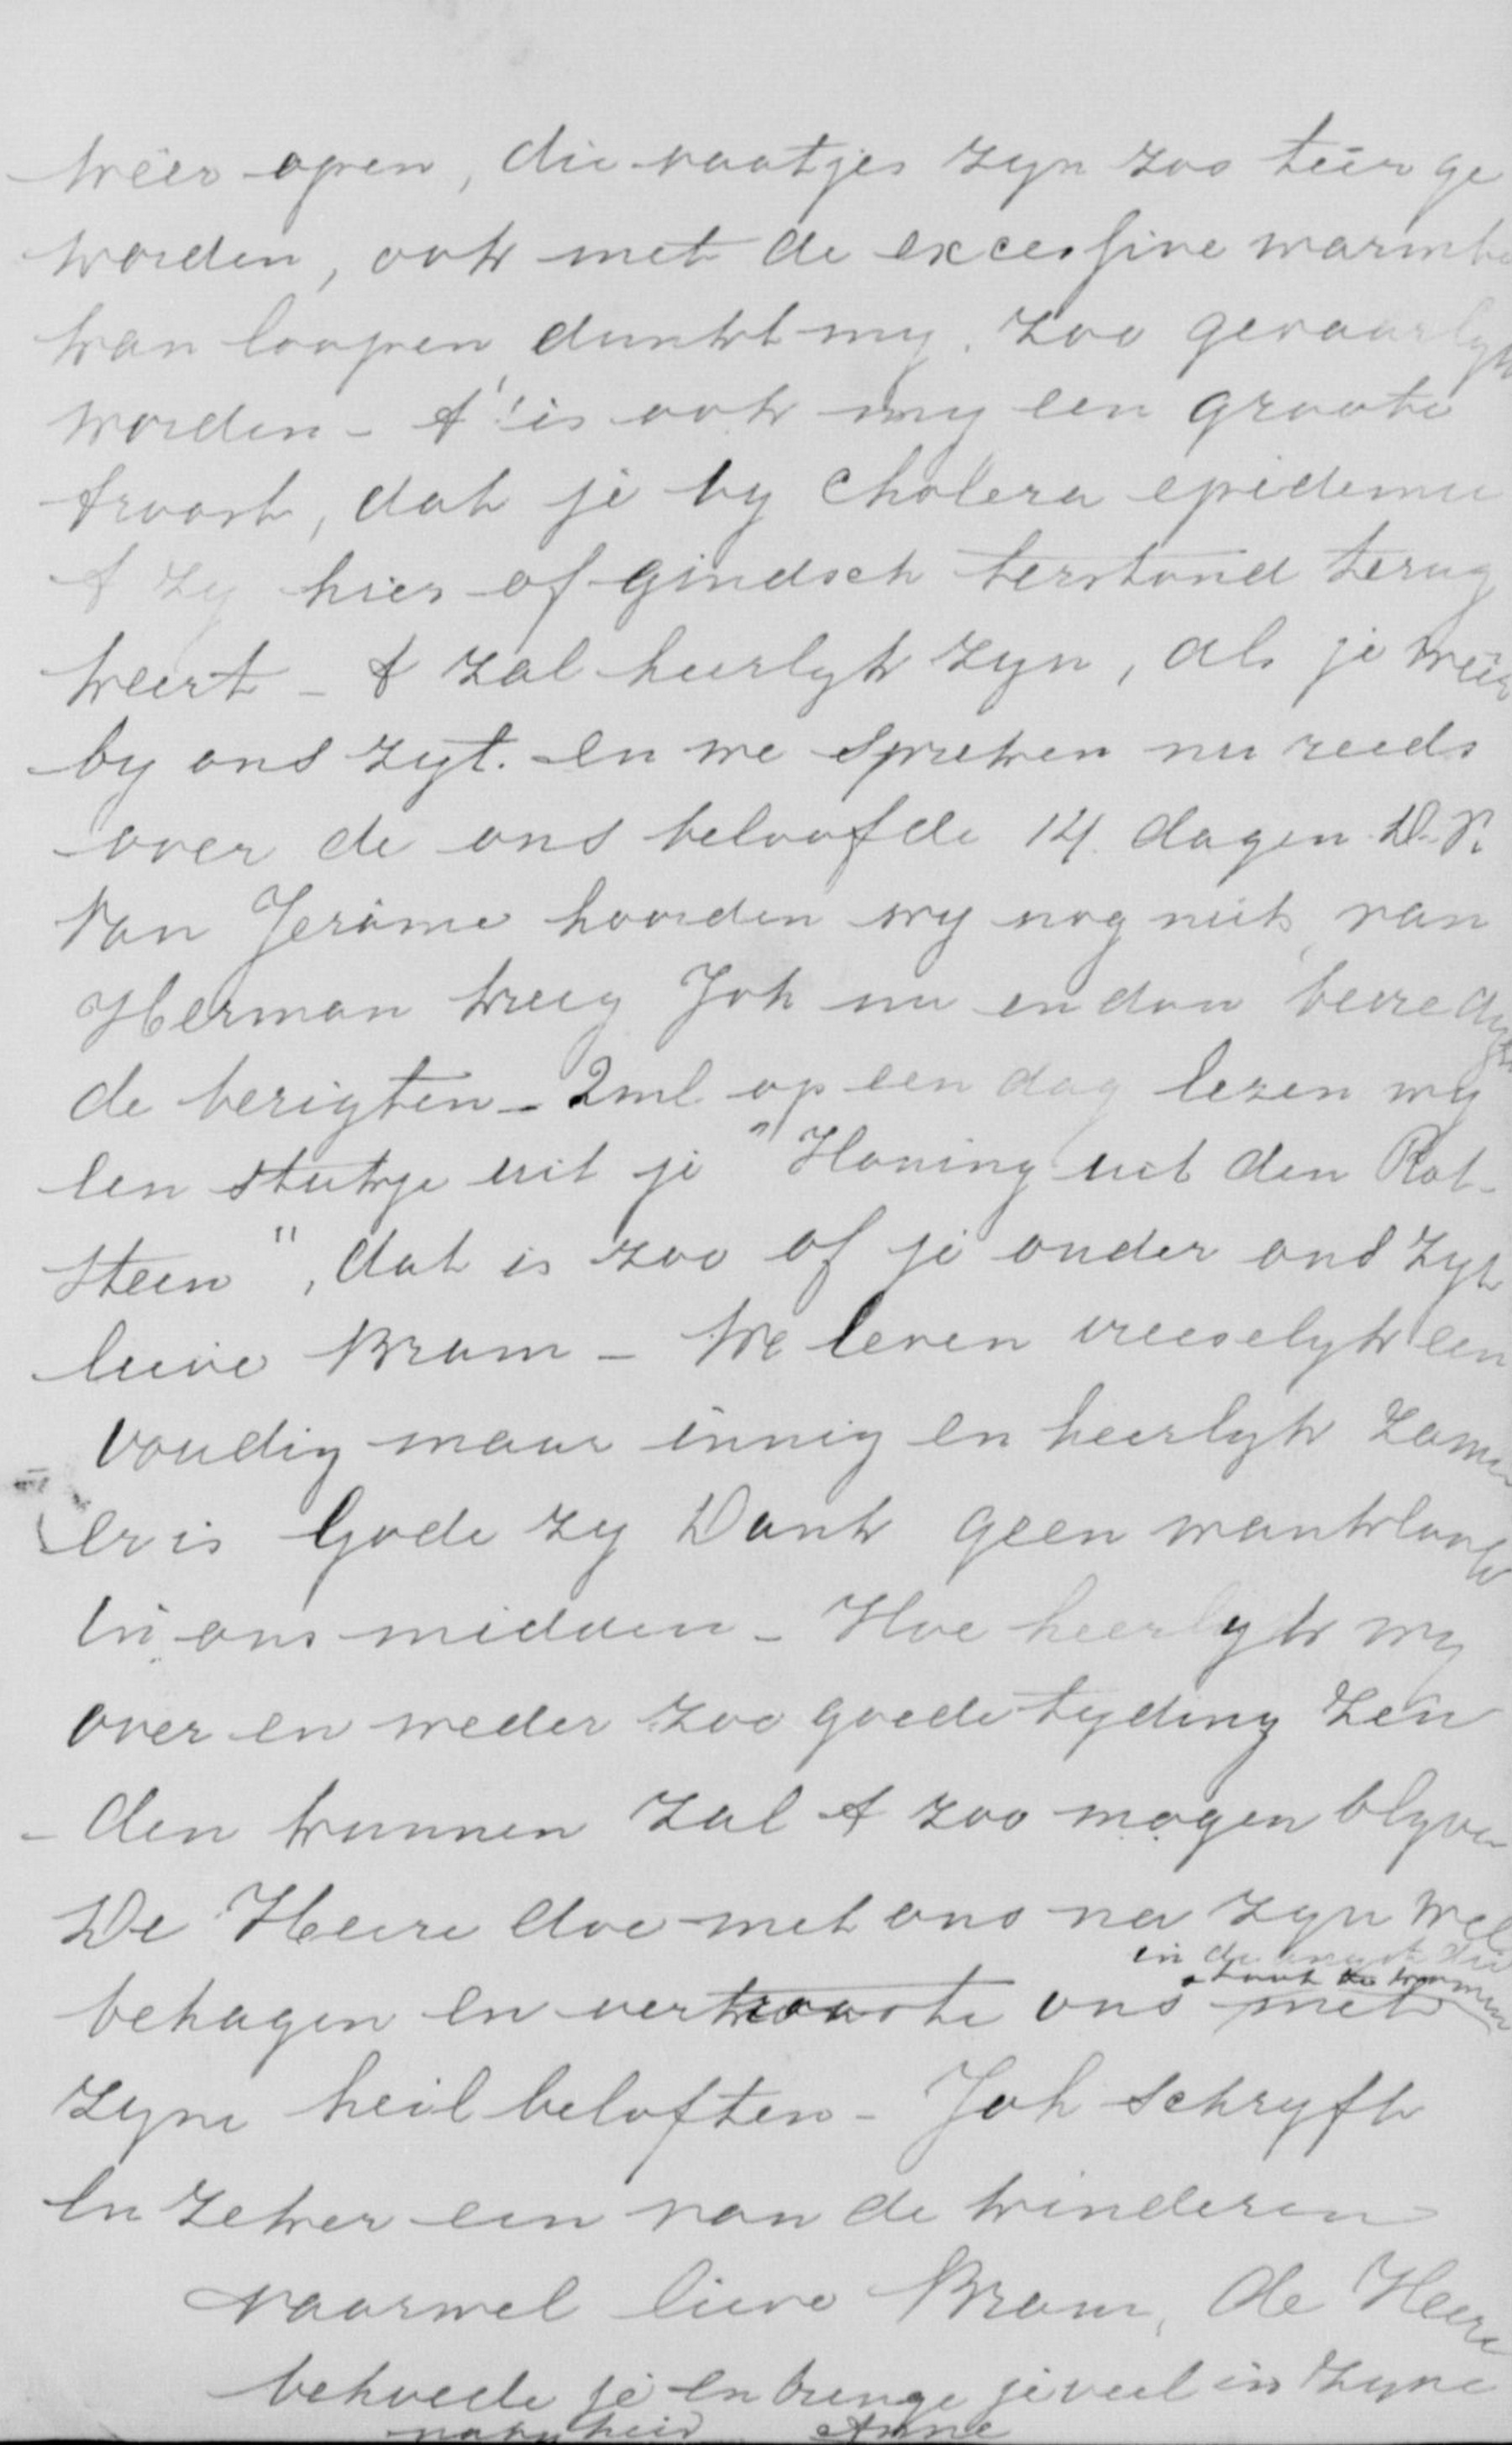 wéér open, die vaatjes zyn zoo teer ge
worden, ook met de excessive warmte
kan loopen dunkt my. zoo gevaarlyk
worden - t' is ook my een groote
troost, dat je by cholera epidemie
t zy hier of gindsch terstond terug
keert - t zal heerlyk zyn, als je weer
by ons zyt. en we spreken nu reeds
over de ons beloofde 14 dagen D.V.
Van Jerôme hoorden wy nog niets, van
Herman kreeg Joh nu en dan
de berigten - 2ml op een dag lezen wy
een stukje uit je "Honing uit den Rot-
steen", dat is zoo of je onder ons zyt
lieve Bram - We leven vreeselyk een
voudig maar innig en heerlyk zamen
er is Gode zy Dank geen wanklank
in ons midden - Hoe heerlyk wy
over en weder zoo goede tyding zen
- den kunnen zal t zoo mogen blyven
De Heere doe met ons na zyn wel
in de die
staat te komen
behagen en vertrooste ons met
zyne heilbeloften - Joh schryft
en zeker een van de kinderen
vaarwel lieve Bram, de Heere
behoede je en brenge je veel in zyne
nabyheid Anne